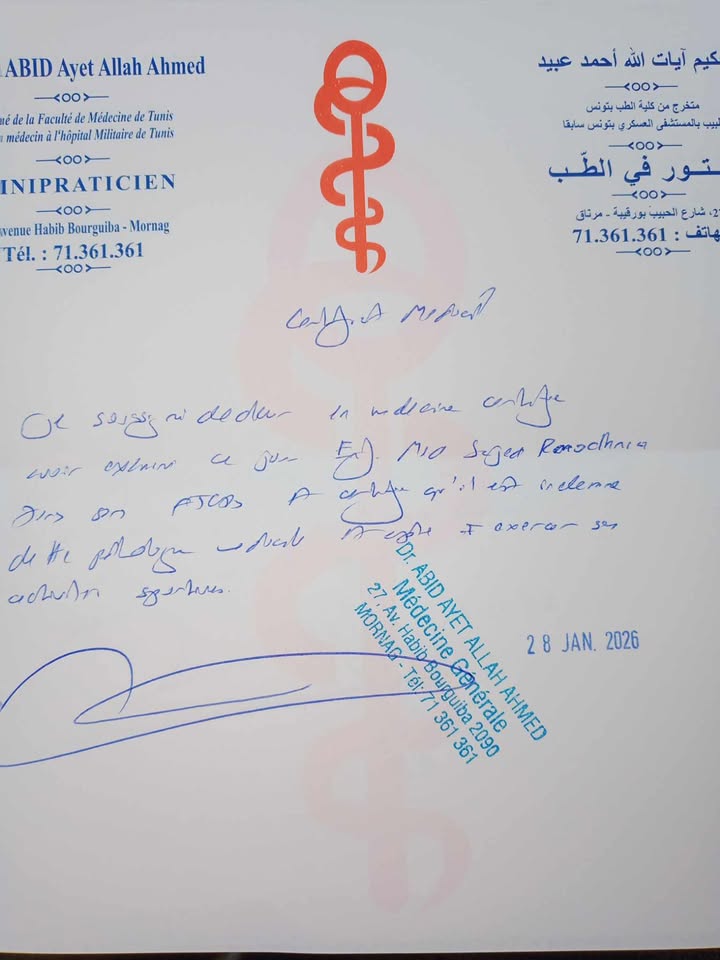 ABID Ayet Allah Ahmed
né de la Faculté de Médecine de Tunis
médecin à l'hôpital Militaire de Tunis
INIPRATICIEN
venue Habib Bourguiba - Mornag
Tél. : 71.361.361
كيم آيات الله أحمد عبيد
متخرج من كلية الطب بتونس
بيب بالمستشفى العسكري بتونس سابقا
تور في الطّب
شارع الحبيب بورقيبة - مرناق
هاتف : 71.361.361
Certificat Medical
Je soussigné docteur en medecine certifie
avoir examiné ce jour
certifie qu'il est indemne
pathologie medicale exercer ses
activités sportives.
Dr. ABID AYET ALLAH AHMED
Médecine Générale
27, Av. Habib Bourguiba 2090
MORNAG - Tél: 71 361 361
28 JAN. 2026